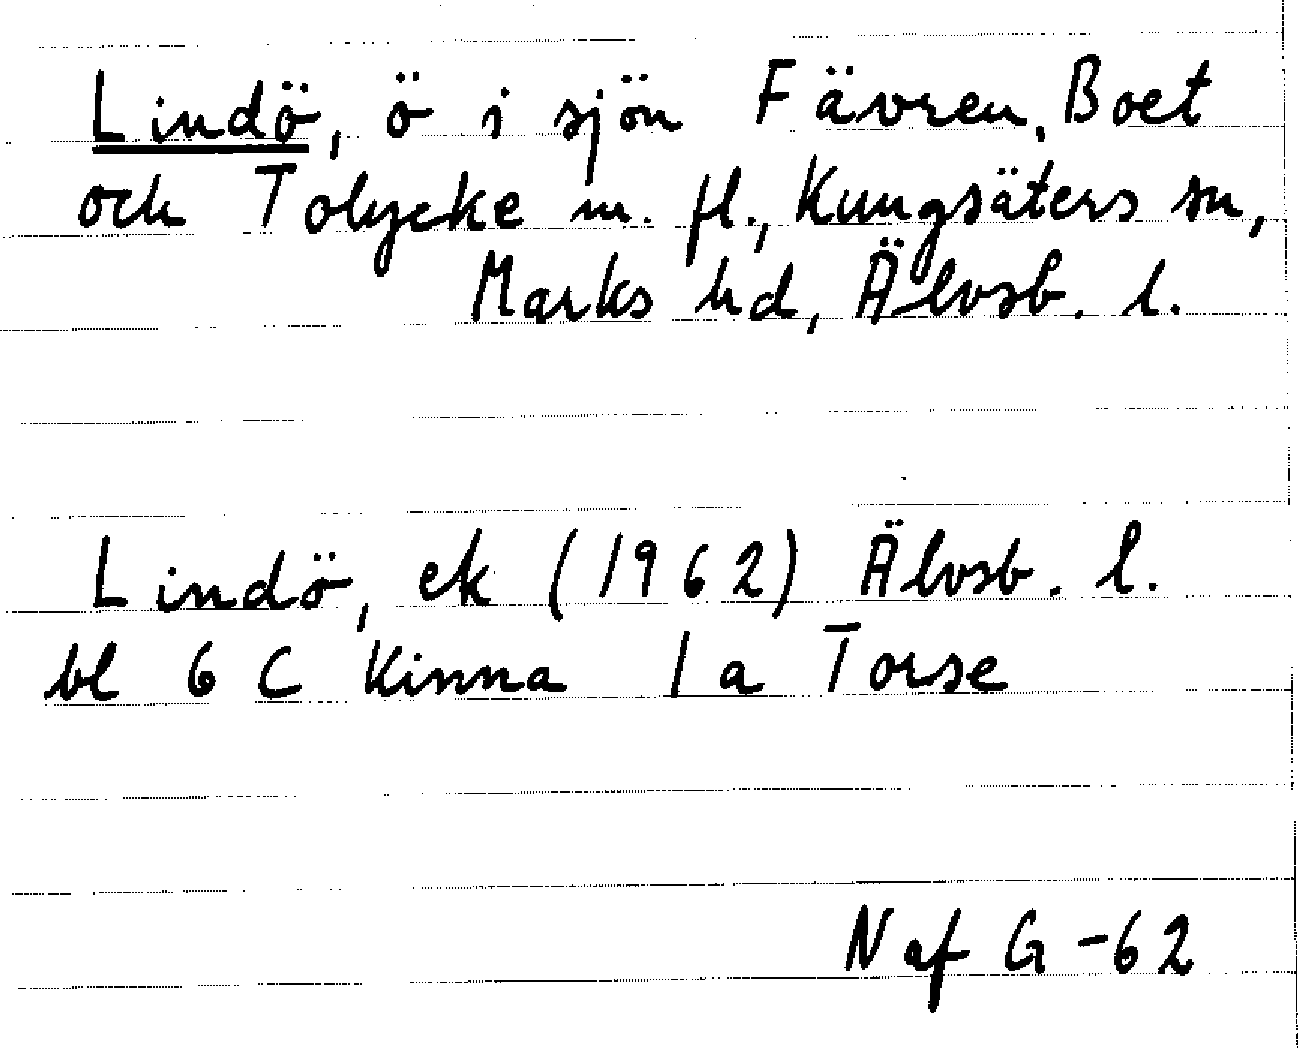 Lindö, ö i sjön Fävren, Boet
och Tolycke m. fl., Kungsäters sn,
Marks hd, Älvsb. l.
Lindö, ek (1962) Älvsb. l.
bl 6 C Kinna 1 a Torse
Naf G -62